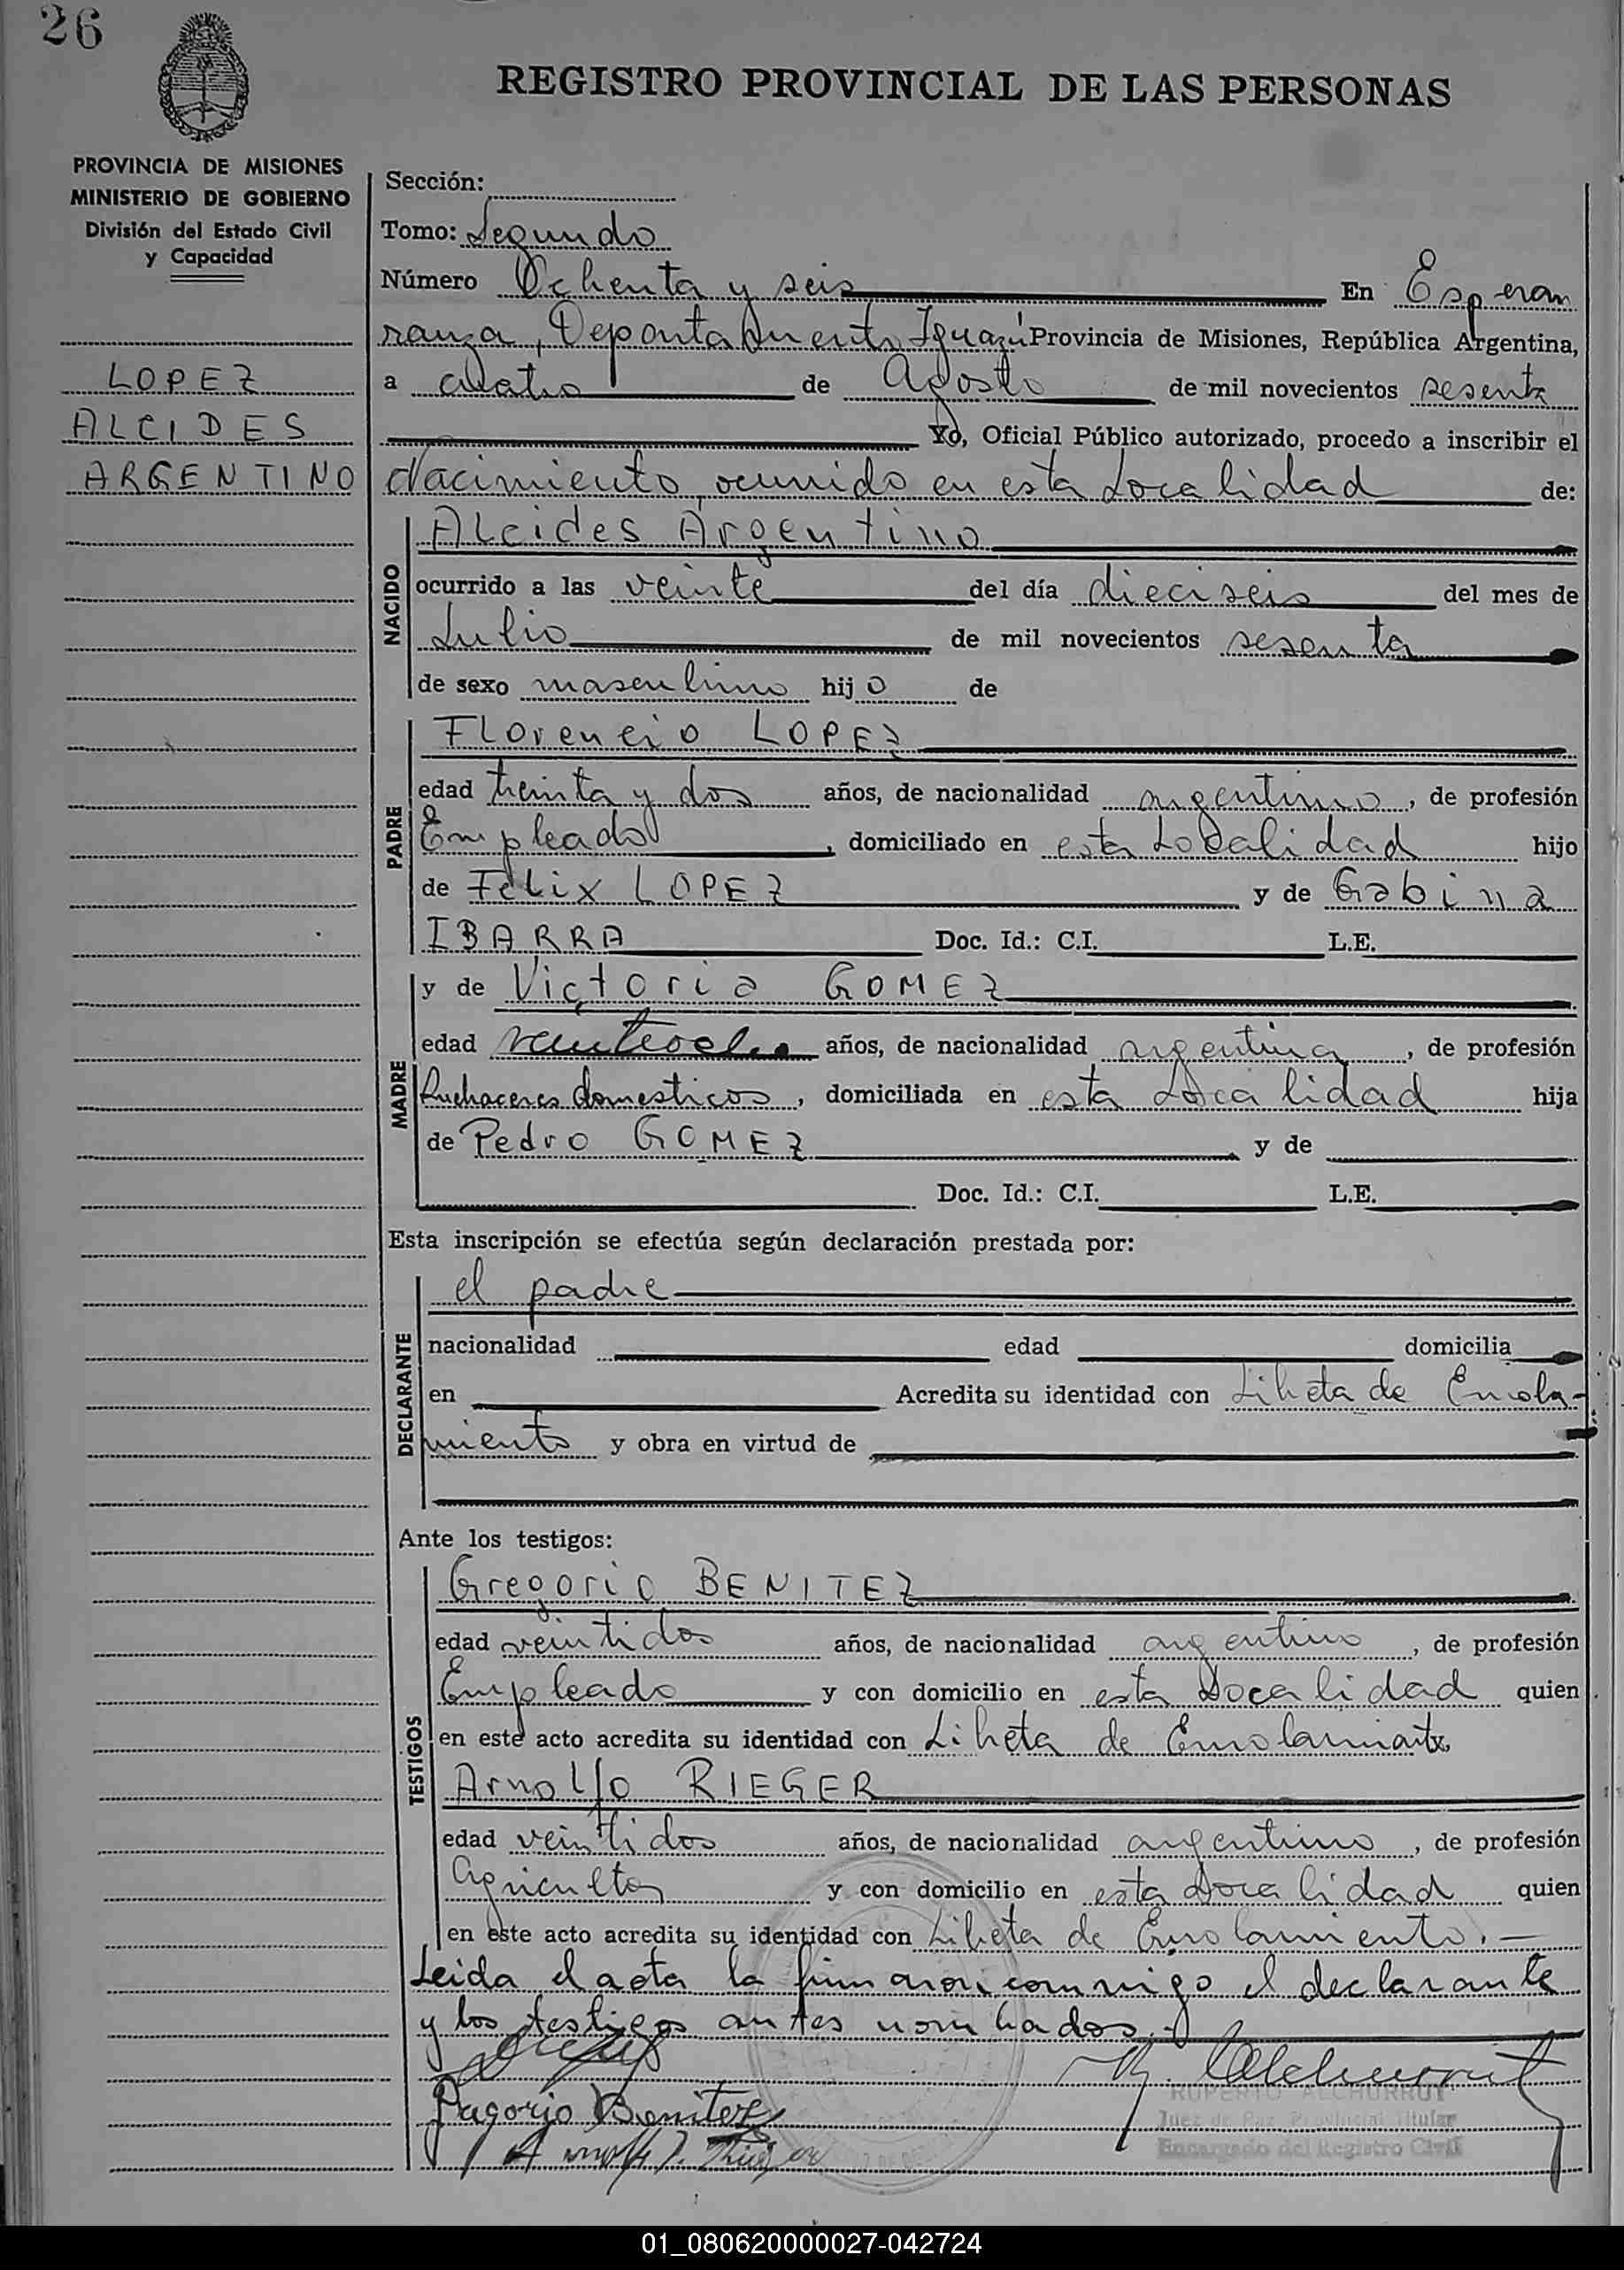 26
REGISTRO PROVINCIAL DE LAS PERSONAS
PROVINCIA DE MISIONES
MINISTERIO DE GOBIERNO
División del Estado Civil
y Capacidad
LOPEZ
ALCIDES
ARGENTINO
Sección:
Tomo: Segundo
Número Ochenta y seis En Esperan
ranza, Departamento Iguazú Provincia de Misiones, República Argentina,
a cuatro de Agosto de mil novecientos sesenta
Yo, Oficial Público autorizado, procedo a inscribir el
Nacimiento, ocurrido en esta Localidad de:
NACIDO
Alcides Argentino
ocurrido a las veinte del día dieciseis del mes de
Julio de mil novecientos sesenta
de sexo masculino hijo de
PADRE
Florencio LOPEZ
edad treinta y dos años, de nacionalidad argentino, de profesión
Empleado, domiciliado en esta Localidad hijo
de Félix LOPEZ y de Gabina
IBARRA Doc. Id.: C.I. L.E.
MADRE
y de Victoria GOMEZ
edad veinteocho años, de nacionalidad argentina, de profesión
Quehaceres domesticos, domiciliada en esta Localidad hija
de Pedro GOMEZ y de
Doc. Id.: C.I. L.E.
Esta inscripción se efectúa según declaración prestada por:
DECLARANTE
el padre
nacionalidad edad domicilia
en Acredita su identidad con Libreta de Enrola-
miento y obra en virtud de
Ante los testigos:
TESTIGOS
Gregorio BENITEZ
edad veintidos años, de nacionalidad argentino, de profesión
Empleado y con domicilio en esta Localidad quien
en este acto acredita su identidad con Libreta de Enrolamiento,
Arnoldo RIEGER
edad veintidos años, de nacionalidad argentino, de profesión
Agricultor y con domicilio en esta Localidad quien
en este acto acredita su identidad con Libreta de Enrolamiento.—
Leida el acta la firmaron conmigo el declarante
y los testigos antes nombrados.-
RUPERTO ALCHURRUT
Juez de Paz Provincial Titular
Encargado del Registro Civil
Benitez
01_080620000027-042724